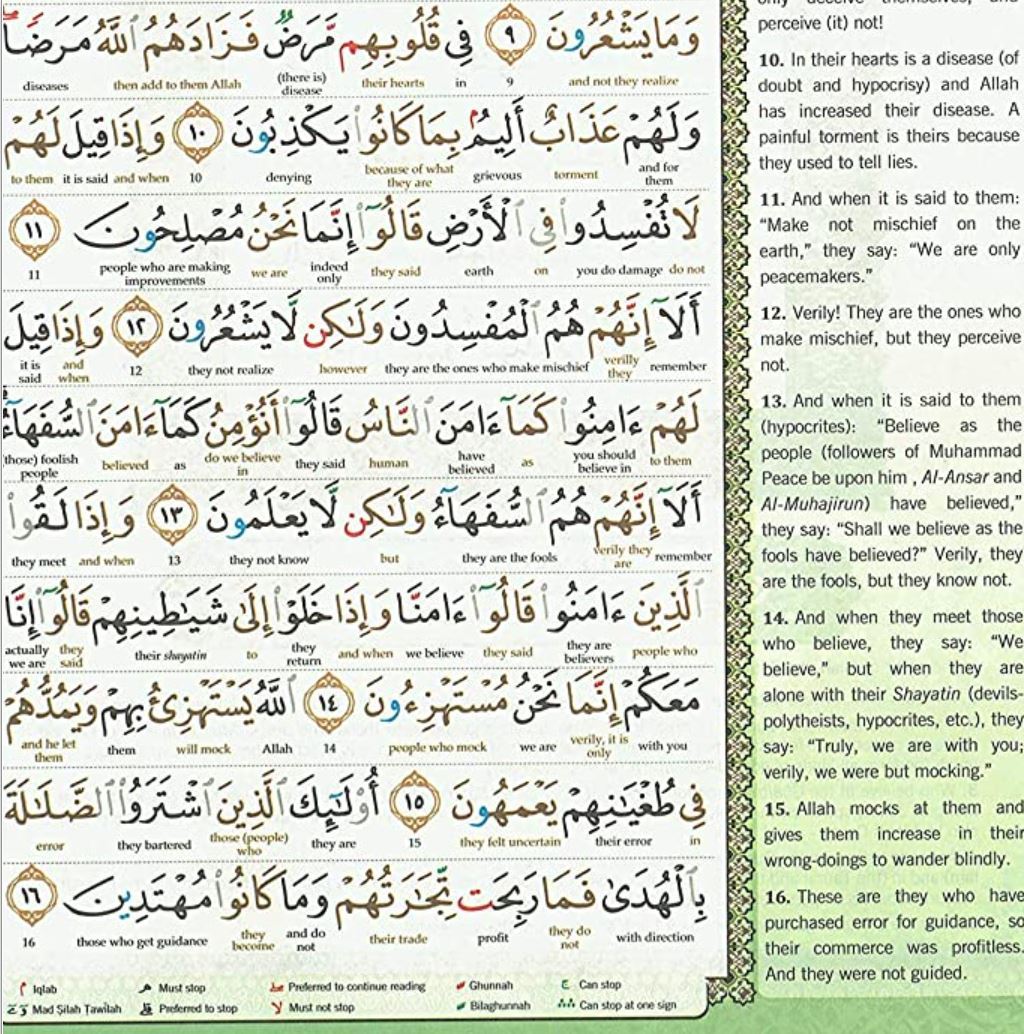 وَمَا يَشْعُرُونَ ٩ فِي قُلُوبِهِم مَّرَضٌ فَزَادَهُمُ ٱللَّهُ مَرَضًا
and not they realize 9 in their hearts (there is) disease then add to them Allah diseases
وَلَهُمْ عَذَابٌ أَلِيمٌۢ بِمَا كَانُوا۟ يَكْذِبُونَ ١٠ وَإِذَا قِيلَ لَهُمْ
and for them torment grievous because of what they are denying 10 and when it is said to them
لَا تُفْسِدُوا۟ فِي ٱلْأَرْضِ قَالُوٓا۟ إِنَّمَا نَحْنُ مُصْلِحُونَ ١١
do not you do damage on earth they said indeed only we are people who are making improvements 11
أَلَآ إِنَّهُمْ هُمُ ٱلْمُفْسِدُونَ وَلَٰكِن لَّا يَشْعُرُونَ ١٢ وَإِذَا قِيلَ
remember verilly they they are the ones who make mischief however they not realize 12 and when it is said
لَهُمْ ءَامِنُوا۟ كَمَآ ءَامَنَ ٱلنَّاسُ قَالُوٓا۟ أَنُؤْمِنُ كَمَآ ءَامَنَ ٱلسُّفَهَآءُ
to them you should believe in as have believed human they said do we believe in as believed those) foolish people
أَلَآ إِنَّهُمْ هُمُ ٱلسُّفَهَآءُ وَلَٰكِن لَّا يَعْلَمُونَ ١٣ وَإِذَا لَقُوا۟
remember verily they are they are the fools but they not know 13 and when they meet
ٱلَّذِينَ ءَامَنُوا۟ قَالُوٓا۟ ءَامَنَّا وَإِذَا خَلَوْا۟ إِلَىٰ شَيَٰطِينِهِمْ قَالُوٓا۟ إِنَّا
people who they are believers they said we believe and when they return to their shayatin they said actually we are
مَعَكُمْ إِنَّمَا نَحْنُ مُسْتَهْزِءُونَ ١٤ ٱللَّهُ يَسْتَهْزِئُ بِهِمْ وَيَمُدُّهُمْ
with you verily, it is only we are people who mock 14 Allah will mock them and he let them
فِي طُغْيَٰنِهِمْ يَعْمَهُونَ ١٥ أُو۟لَٰٓئِكَ ٱلَّذِينَ ٱشْتَرَوُا۟ ٱلضَّلَٰلَةَ
in their error they felt uncertain 15 they are those (people) who they bartered error
بِٱلْهُدَىٰ فَمَا رَبِحَت تِّجَٰرَتُهُمْ وَمَا كَانُوا۟ مُهْتَدِينَ ١٦
with direction they do not profit their trade and do not they become those who get guidance 16
Iqlab Must stop Preferred to continue reading Ghunnah Can stop
Mad Silah Tawilah Preferred to stop Must not stop Bilaghunnah Can stop at one sign
only deceive themselves, and
perceive (it) not!
10. In their hearts is a disease (of
doubt and hypocrisy) and Allah
has increased their disease. A
painful torment is theirs because
they used to tell lies.
11. And when it is said to them:
“Make not mischief on the
earth,” they say: “We are only
peacemakers.”
12. Verily! They are the ones who
make mischief, but they perceive
not.
13. And when it is said to them
(hypocrites): “Believe as the
people (followers of Muhammad
Peace be upon him , Al-Ansar and
Al-Muhajirun) have believed,”
they say: “Shall we believe as the
fools have believed?” Verily, they
are the fools, but they know not.
14. And when they meet those
who believe, they say: “We
believe,” but when they are
alone with their Shayatin (devils-
polytheists, hypocrites, etc.), they
say: “Truly, we are with you;
verily, we were but mocking.”
15. Allah mocks at them and
gives them increase in their
wrong-doings to wander blindly.
16. These are they who have
purchased error for guidance, so
their commerce was profitless.
And they were not guided.